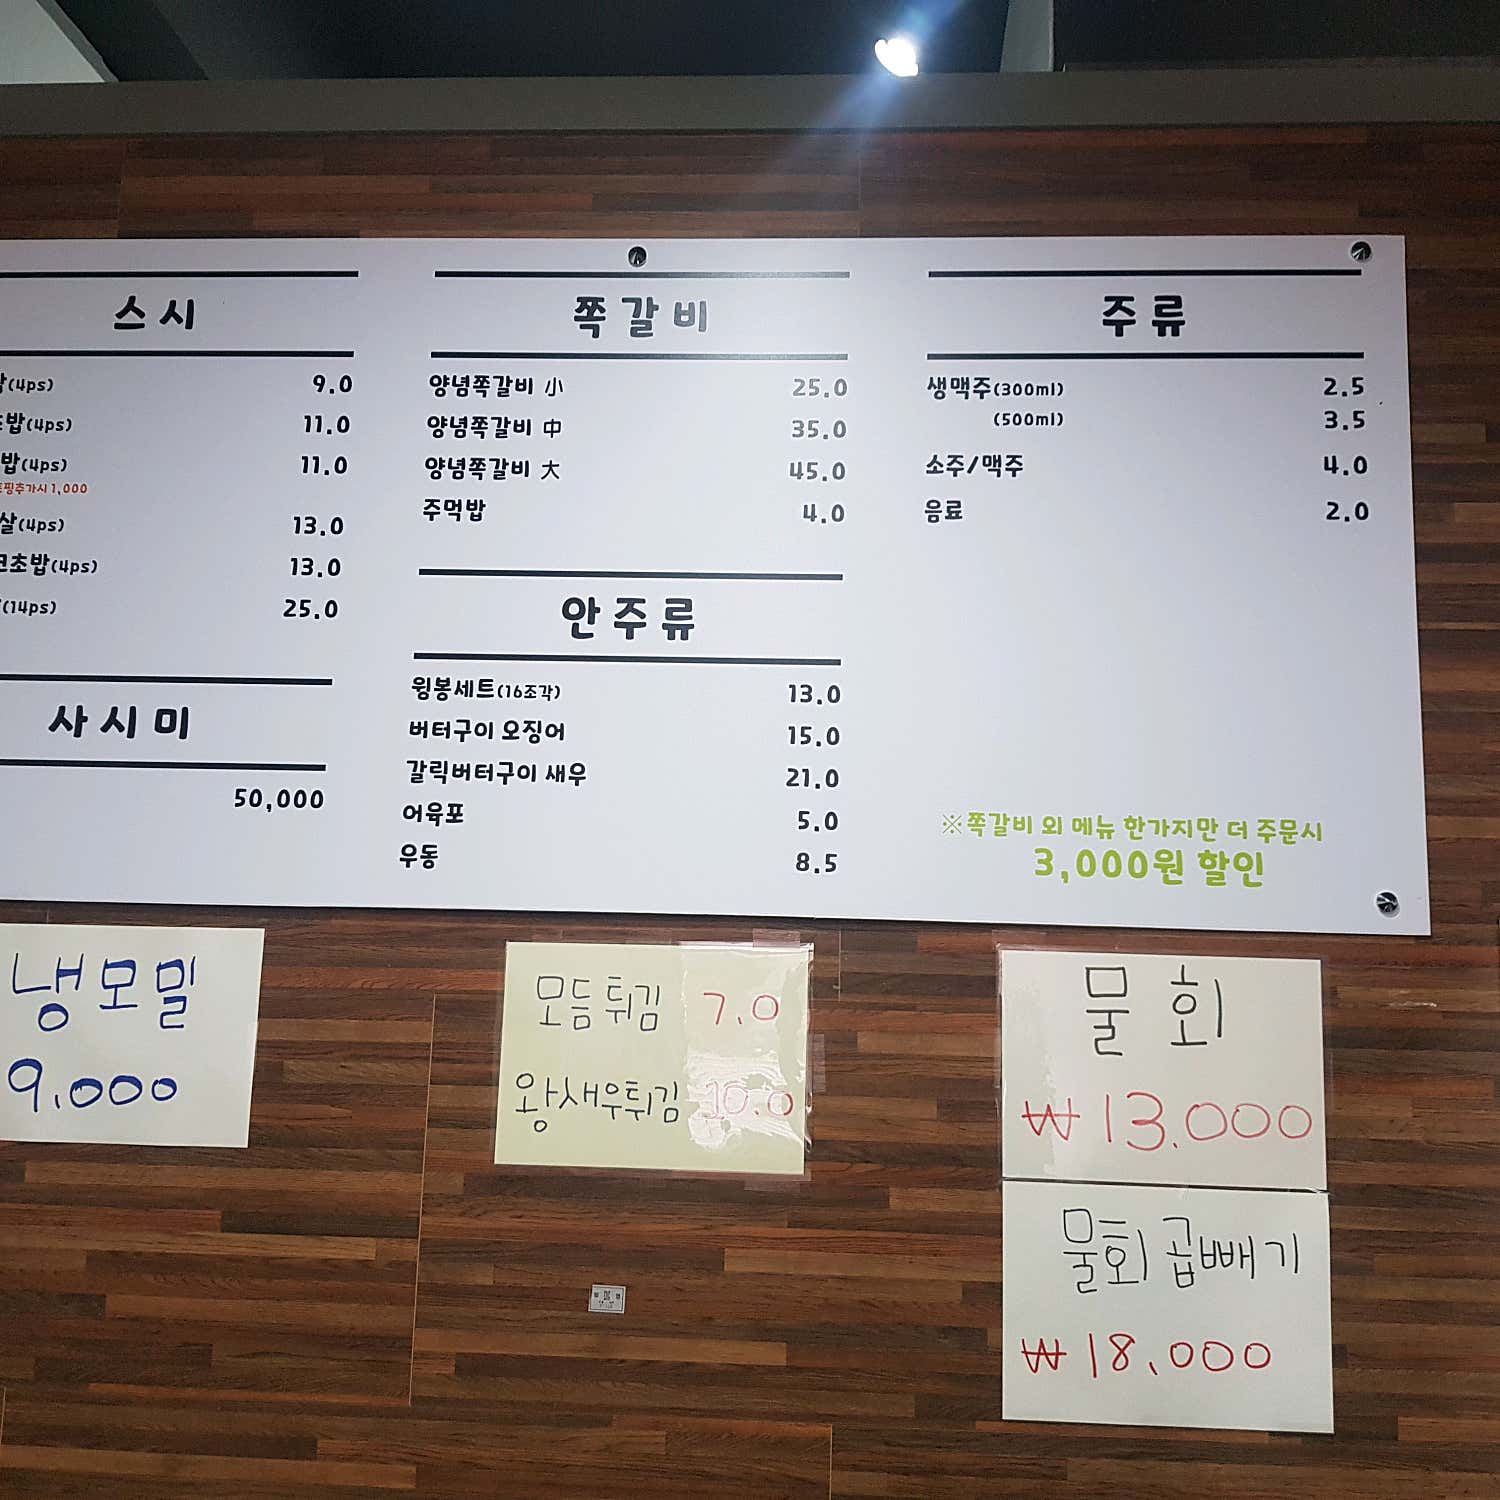 스시
(4ps) 9.0
밥(4ps) 11.0
밥(4ps) 11.0
핑추가시 1,000
살(4ps) 13.0
초밥(4ps) 13.0
(14ps) 25.0
사시미
50,000
쪽갈비
양념쪽갈비 小 25.0
양념쪽갈비 中 35.0
양념쪽갈비 大 45.0
주먹밥 4.0
안주류
윙봉세트(16조각) 13.0
버터구이 오징어 15.0
갈릭버터구이 새우 21.0
어육포 5.0
우동 8.5
주류
생맥주(300ml) 2.5
(500ml) 3.5
소주/맥주 4.0
음료 2.0
※쪽갈비 외 메뉴 한가지만 더 주문시
3,000원 할인
냉모밀
9.000
모듬튀김 7.0
왕새우튀김 10.0
물회
₩13.000
물회 곱빼기
₩18.000